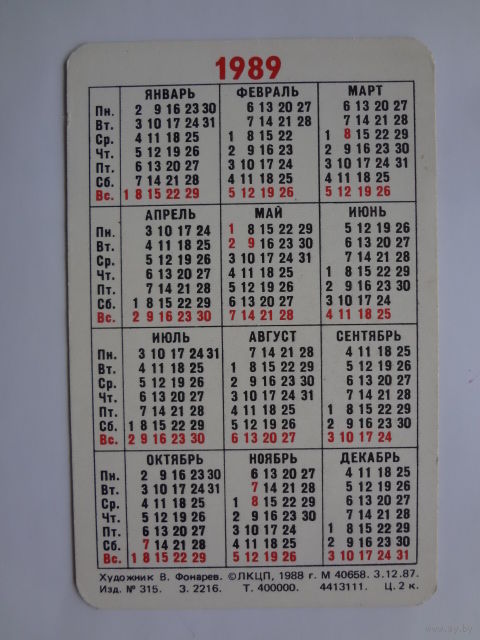 1989
ЯНВАРЬ ФЕВРАЛЬ МАРТ
Пн. 2 9 16 23 30 6 13 20 27 6 13 20 27
Вт. 3 10 17 24 31 7 14 21 28 7 14 21 28
Ср. 4 11 18 25 1 8 15 22 1 8 15 22 29
Чт. 5 12 19 26 2 9 16 23 2 9 16 23 30
Пт. 6 13 20 27 3 10 17 24 3 10 17 24 31
Сб. 7 14 21 28 4 11 18 25 4 11 18 25
Вс. 1 8 15 22 29 5 12 19 26 5 12 19 26
АПРЕЛЬ МАЙ ИЮНЬ
Пн. 3 10 17 24 1 8 15 22 29 5 12 19 26
Вт. 4 11 18 25 2 9 16 23 30 6 13 20 27
Ср. 5 12 19 26 3 10 17 24 31 7 14 21 28
Чт. 6 13 20 27 4 11 18 25 1 8 15 22 29
Пт. 7 14 21 28 5 12 19 26 2 9 16 23 30
Сб. 1 8 15 22 29 6 13 20 27 3 10 17 24
Вс. 2 9 16 23 30 7 14 21 28 4 11 18 25
ИЮЛЬ АВГУСТ СЕНТЯБРЬ
Пн. 3 10 17 24 31 7 14 21 28 4 11 18 25
Вт. 4 11 18 25 1 8 15 22 29 5 12 19 26
Ср. 5 12 19 26 2 9 16 23 30 6 13 20 27
Чт. 6 13 20 27 3 10 17 24 31 7 14 21 28
Пт. 7 14 21 28 4 11 18 25 1 8 15 22 29
Сб. 1 8 15 22 29 5 12 19 26 2 9 16 23 30
Вс. 2 9 16 23 30 6 13 20 27 3 10 17 24
ОКТЯБРЬ НОЯБРЬ ДЕКАБРЬ
Пн. 2 9 16 23 30 6 13 20 27 4 11 18 25
Вт. 3 10 17 24 31 7 14 21 28 5 12 19 26
Ср. 4 11 18 25 1 8 15 22 29 6 13 20 27
Чт. 5 12 19 26 2 9 16 23 30 7 14 21 28
Пт. 6 13 20 27 3 10 17 24 1 8 15 22 29
Сб. 7 14 21 28 4 11 18 25 2 9 16 23 30
Вс. 1 8 15 22 29 5 12 19 26 3 10 17 24 31
Художник В. Фонарев. ©ЛКЦП, 1988 г. М 40658. 3.12.87.
Изд. № 315. З. 2216. Т. 400000. 4413111. Ц. 2 к.
ay.by